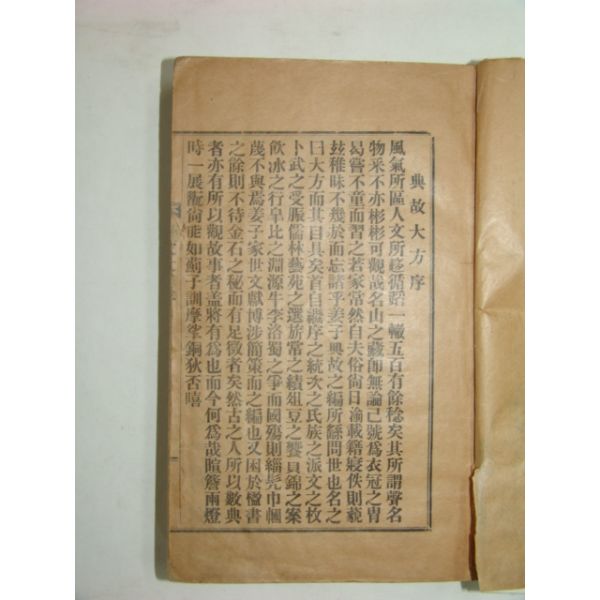 典故大方序
風氣所區人文所趍循蹈一轍五百有餘稔矣其所謂聲名
物采不亦彬彬可觀哉名山之藏師無論已號爲衣冠之胄
曷嘗不童而習之若家常然自夫俗尙日渝載籍寢佚則藐
玆稚昧不幾於面忘諸乎姜子典故之編所繇問世也名之
曰大方而其目具矣首自繼序之統次之氏族之派文之枚
卜武之受脤儒林藝苑之選旂常之績俎豆之饗貝錦之案
飮冰之行皐比之淵源牛李洛蜀之爭而國殤則緇髡巾幗
蔑不與焉姜子家世文獻博涉簡策而之編也又困於楹書
之餘則不待金石之秘而有足徵者矣然古之人所以數典
者亦有所以觀故事者盖將有爲也而今何爲哉暄簷雨燈
時一展衡尙能如薊子訓摩挲銅狄否嘻